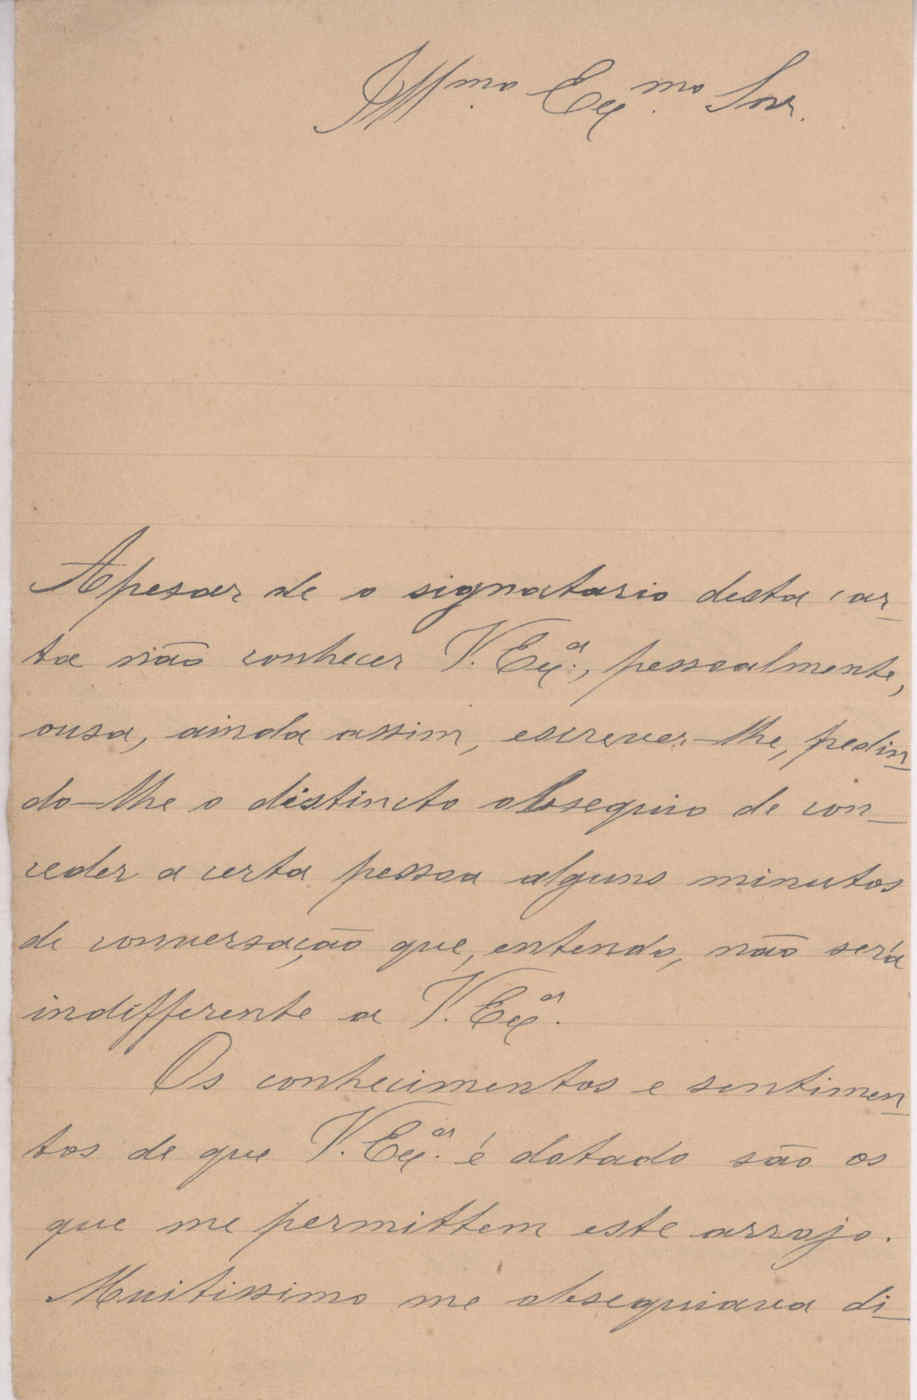 Illmo. Exmo. Snr.
Apesar de o signatario desta car-
ta não conhecer V. Exª., pessoalmente,
ousa, ainda assim, escrever-lhe, pedin-
do-lhe o distincto obsequio de con-
ceder a certa pessoa alguns minutos
de conversação que, entendo, não será
indifferente a V. Exª.
Os conhecimentos e sentimen-
tos de que V. Exª. é dotado são os
que me permittem este arrojo.
Muitissimo me obsequiava di-